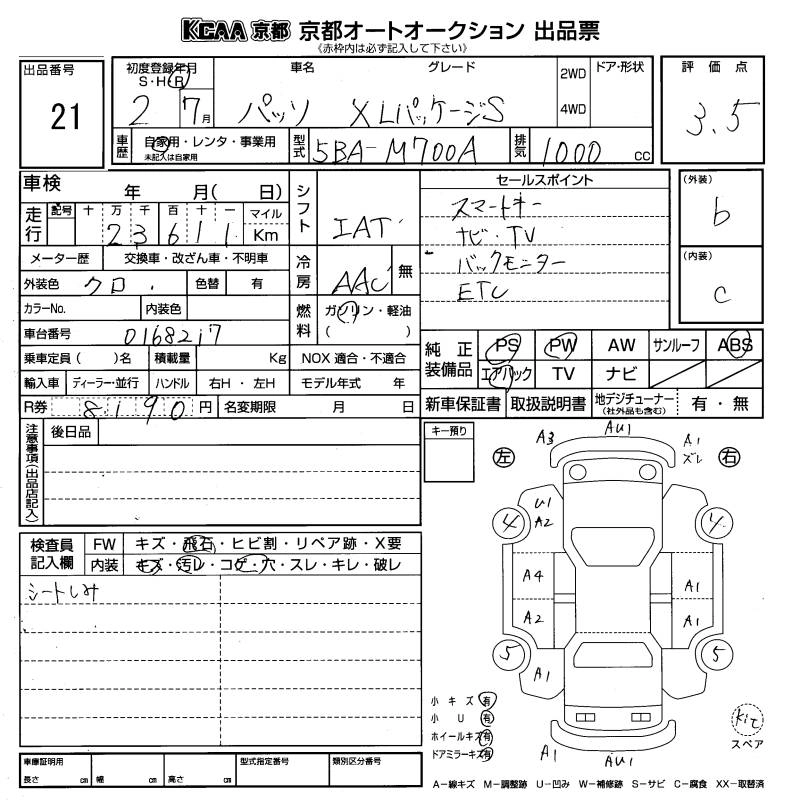 KCAA 京都 京都オートオークション 出品票
《赤枠内は必ず記入して下さい》
出品番号
21
初度登録年月
S・H・R
2 7月
車名
パッソ
グレード
XLパッケージS
2WD
4WD
ドア・形状
評価点
3.5
車歴
自家用・レンタ・事業用
未記入は自家用
型式
5BA-M700A
排気
1000 cc
車検 年 月( 日)
走行
記号 十 万 千 百 十 一 マイル
23611 Km
シフト
IAT
セールスポイント
スマートキー
ナビ・TV
バックモニター
ETC
(外装)
b
(内装)
C
メーター歴 交換車・改ざん車・不明車
外装色 クロ 色替 有
冷房
AAC 無
カラーNo. 内装色
燃料
ガソリン・軽油
( )
車台番号 0168217
乗車定員( )名 積載量 Kg NOX 適合・不適合
輸入車 ディーラー・並行 ハンドル 右H・左H モデル年式 年
R券 8190円 名変期限 月 日
純正装備品
PS PW AW サンルーフ ABS
エアバック TV ナビ
新車保証書 取扱説明書 地デジチューナー(社外品も含む) 有・無
注意事項(出品店記入)
後日品
キー預り
左
右
A3
AU1
A1
ズレ
U1
A2
4
4
A4
A1
A2
A1
5
5
A1
A1
AU1
検査員記入欄
FW キズ・飛石・ヒビ割・リペア跡・X要
内装 キズ・汚レ・コゲ・穴・スレ・キレ・破レ
シートしみ
小キズ 有
小U 有
ホイールキズ 有
ドアミラーキズ 有
kit
スペア
車庫証明用
長さ cm 幅 cm 高さ cm
型式指定番号
類別区分番号
A-線キズ M-調整跡 U-凹み W-補修跡 S-サビ C-腐食 XX-取替済